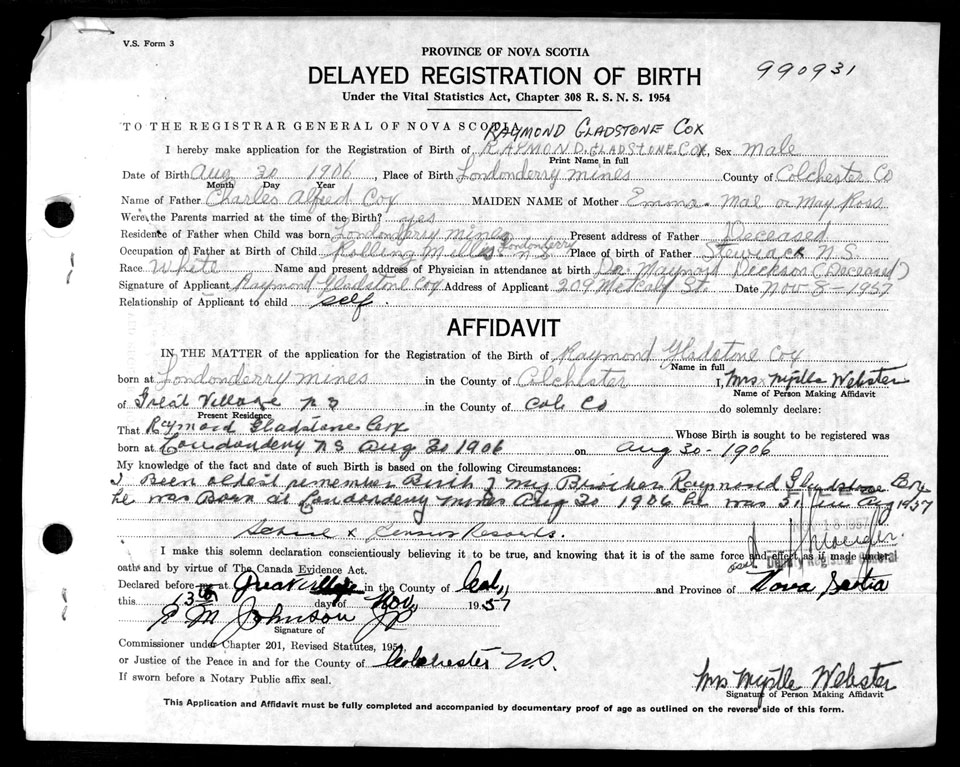 V.S. Form 3
PROVINCE OF NOVA SCOTIA
990931
DELAYED REGISTRATION OF BIRTH
Under the Vital Statistics Act, Chapter 308 R. S. N. S. 1954
TO THE REGISTRAR GENERAL OF NOVA SCOTIA
RAYMOND GLADSTONE COX
I hereby make application for the Registration of Birth of RAYMOND GLADSTONE COX, Sex Male
Print Name in full
Date of Birth Aug 30 1906, Place of Birth Londonderry mines County of Colchester Co
Month Day Year
Name of Father Charles Alfred Cox MAIDEN NAME of Mother Emma Mae or May Ross
Were the Parents married at the time of the Birth? yes
Residence of Father when Child was born Londonderry mines Present address of Father Deceased
Occupation of Father at Birth of Child Rolling Mills Londonderry N S Place of birth of Father Stewiack N.S.
Race White Name and present address of Physician in attendance at birth Dr Maynord (Deceased)
Signature of Applicant Raymond Gladstone Cox Address of Applicant 209 Metcalf St. Date Nov 8-1957
Relationship of Applicant to child self.
AFFIDAVIT
IN THE MATTER of the application for the Registration of the Birth of Raymond Gladstone Cox
Name in full
born at Londonderry mines in the County of Colchester I, Mrs Myrtle Webster
Name of Person Making Affidavit
of Great Village N S in the County of Col Co do solemnly declare:
Present Residence
That Raymond Gladstone Cox Whose Birth is sought to be registered was
born at Londonderry N S Aug 30 1906 on Aug 30-1906
My knowledge of the fact and date of such Birth is based on the following Circumstances:
I Been oldest remember Birth of my Brother Raymond Gladstone Cox
he was Born at Londonderry mines Aug 30 1906 he was 51 in Aug 1957
School & Census Records.
I make this solemn declaration conscientiously believing it to be true, and knowing that it is of the same force and effect as if made under
Deputy Registrar General
oath and by virtue of The Canada Evidence Act.
Declared before me at Great Village in the County of Col, and Province of Nova Scotia
this 13th day of Nov 1957
Johnson JP
Signature of
Commissioner under Chapter 201, Revised Statutes, 1954
or Justice of the Peace in and for the County of Colchester N.S.
If sworn before a Notary Public affix seal.
Mrs Myrtle Webster
Signature of Person Making Affidavit
This Application and Affidavit must be fully completed and accompanied by documentary proof of age as outlined on the reverse side of this form.